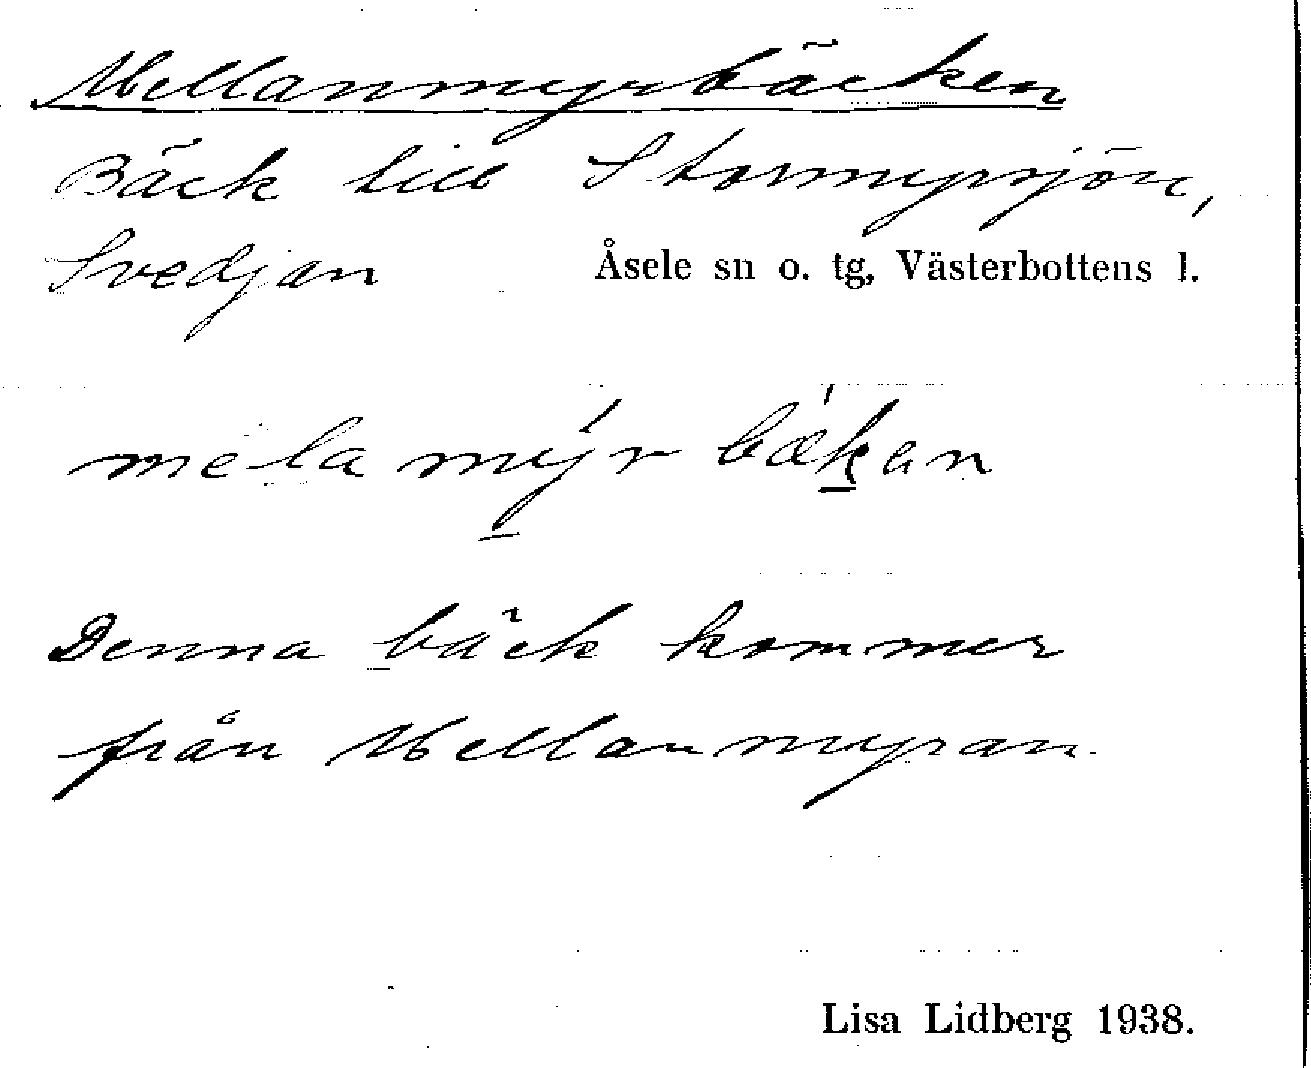 Mellanmyrbäcken
Bäck till Stormyrsjön,
Svedjan Åsele sn o. tg, Västerbottens l.
mela mýr bækan
Denna bäck kommer
från Mellanmyran.
Lisa Lidberg 1938.